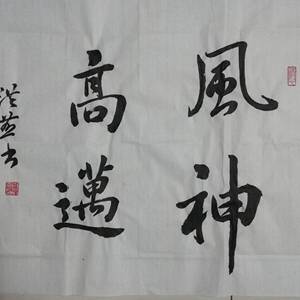 風神
高邁